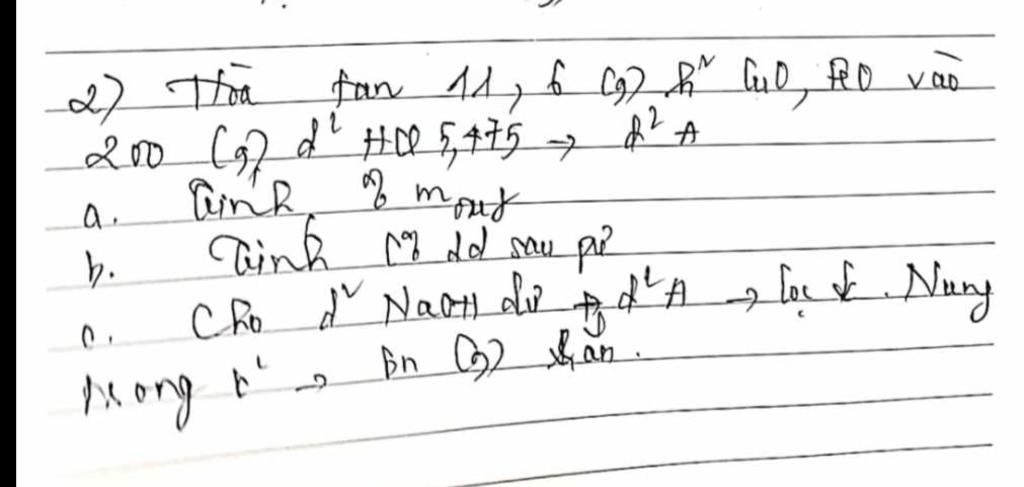 2) Hòa tan 11,6 (g) h² CuO, FeO vào
200 (g) d² HCl 5,475 → d² A
a. Tính % m oxit
b. Tính C% dd sau pứ
c. Cho d² NaOH dư td² A → lọc ↓. Nung
trong k² → Bn (g) rắn.